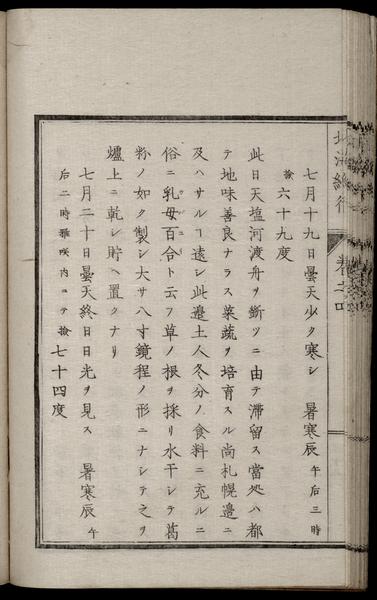 北海紀行 巻之四
七月十九日曇天少ク寒シ 暑寒辰 午后三時
撿六十九度
此日天塩河渡舟ヲ断ツニ由テ滞留ス當処ハ都
テ地味善良ナラス菜蔬ヲ培育スル尚札幌邉ニ
及ハサルー遠シ此邉土人冬分ノ食料ニ充ルニ
俗ニ乳母百合ト云フ草ノ根ヲ採リ水干シテ葛
粉ノ如ク製シ大サ八寸鏡程ノ形ニナシテ之ヲ
爐上ニ乾シ貯ヘ置クナリ
七月二十日曇天終日日光ヲ見ス 暑寒辰 午
后二時稚咲内ニテ撿七十四度